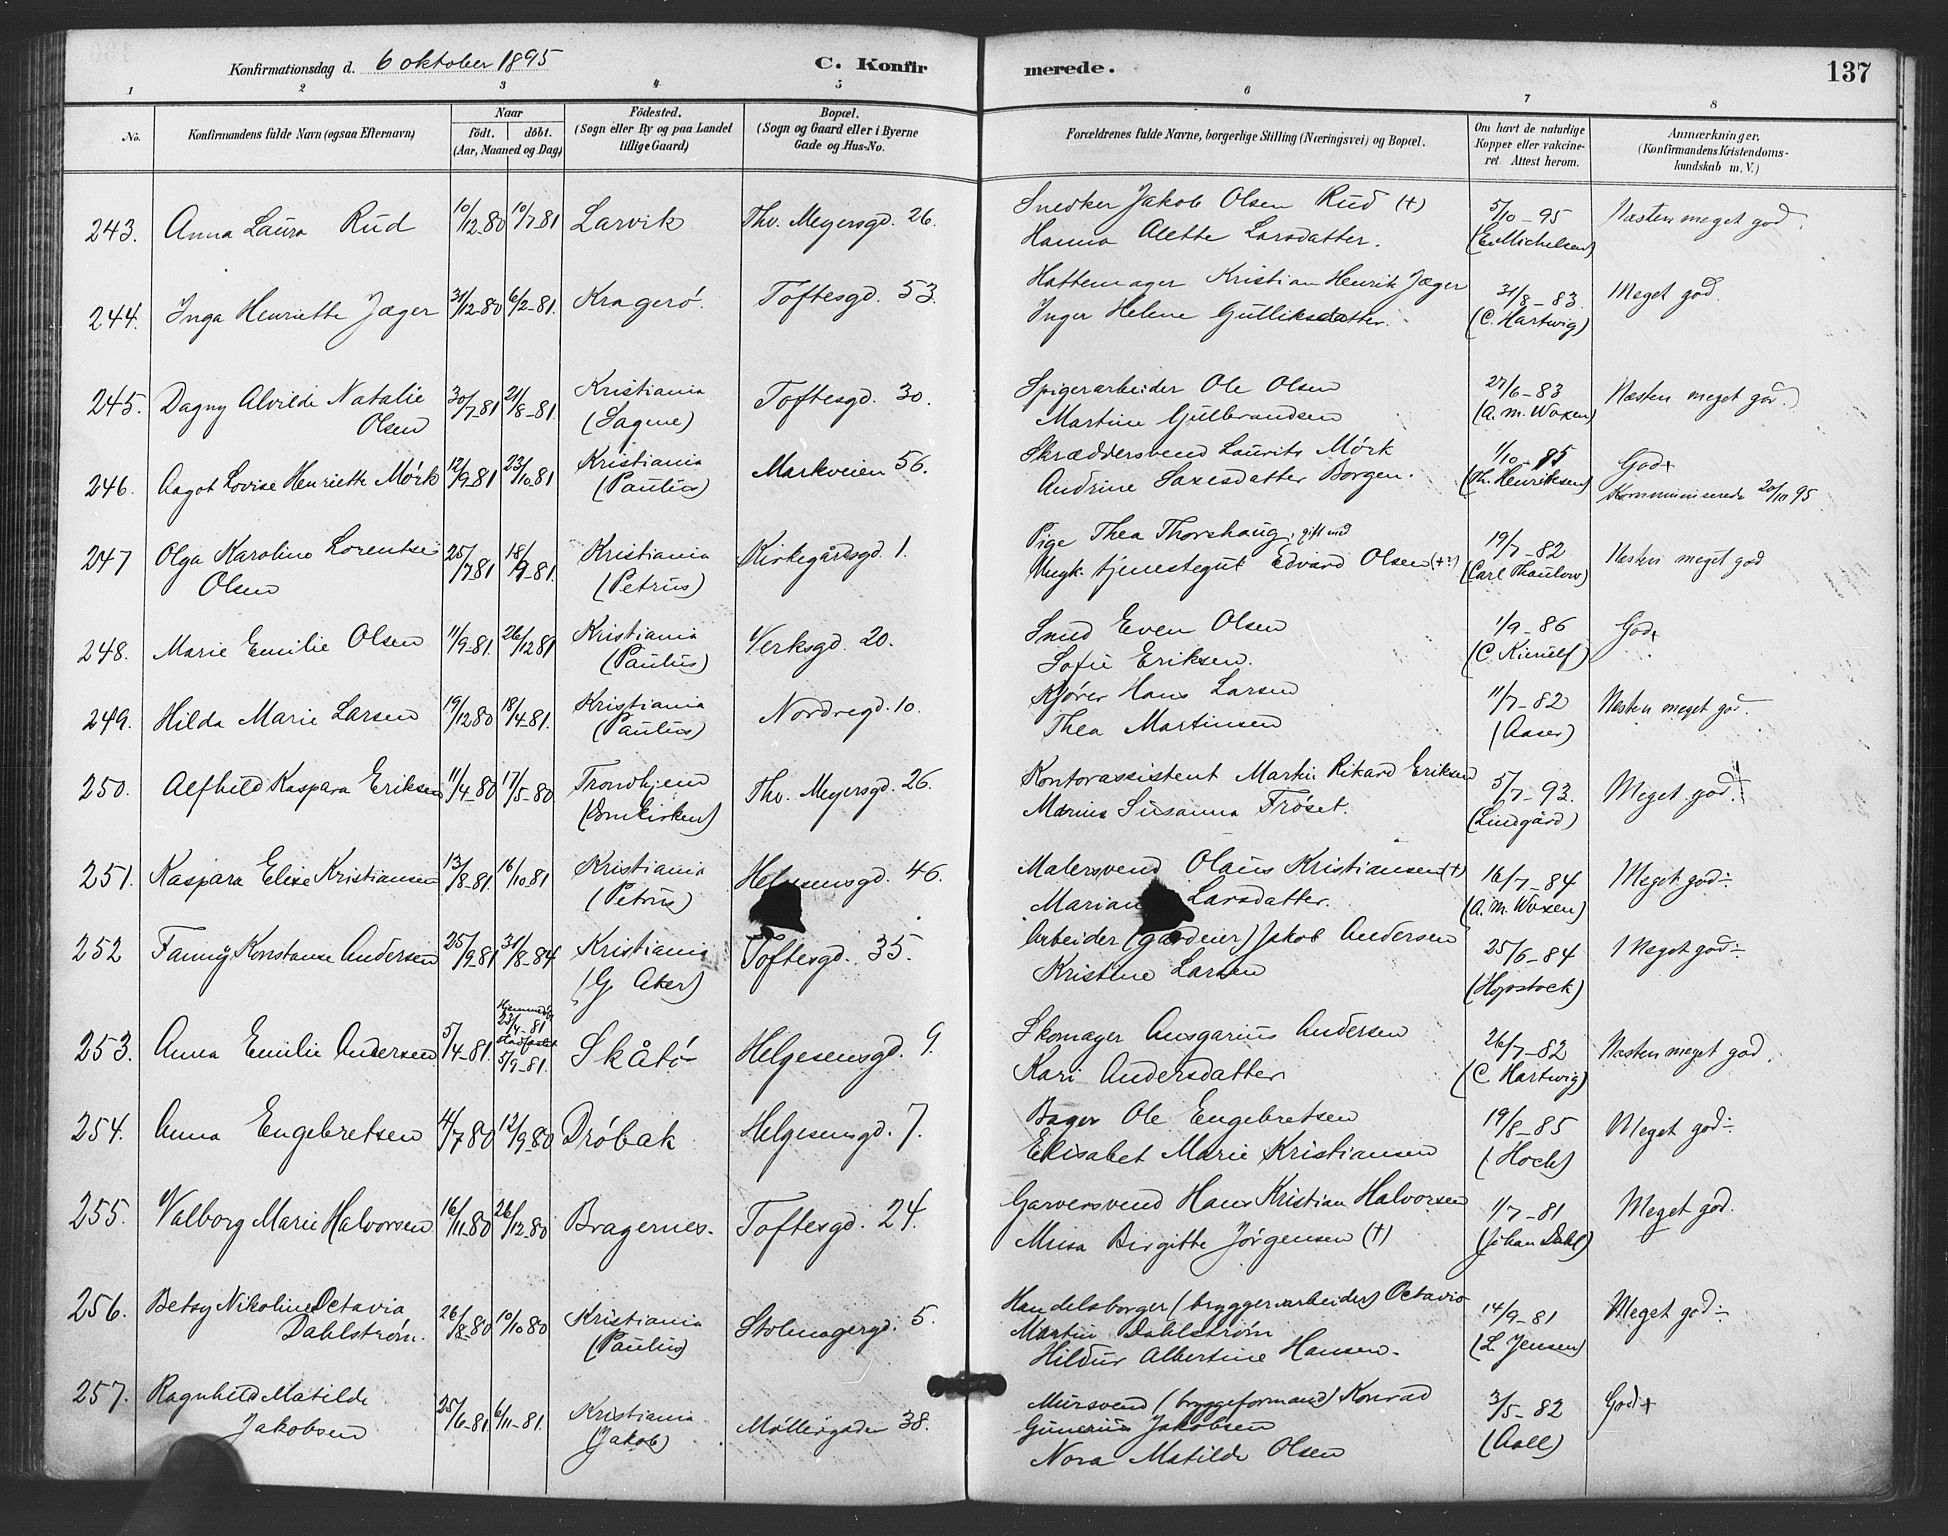 Konfirmationsdag d. 6 oktober 1895
C. Konfirmerede.
137
1 2 3 4 5 6 7 8
No.
Konfirmandens fulde Navn (ogsaa Efternavn)
Naar
født. døbt.
(Aar, Maaned og Dag)
Fødested.
(Sogn eller By og paa Landet
tillige Gaard)
Bopæl.
(Sogn og Gaard eller i Byerne
Gade og Hus-No.
Forældrenes fulde Navne, borgerlige Stilling (Næringsvei) og Bopæl.
Om havt de naturlige
Kopper eller vakcine-
ret Attest herom.
Anmærkninger,
(Konfirmandens Kristendoms-
kundskab m. V.)
243. Anna Laura Rud 10/12-80 10/7-81 Larvik Thv. Meyersgd. 26. Snedker Jakob Olsen Rud (+) 5/10-95 Næsten meget god.
Hanna Alette Larsdatter. (E. Michelsen)
244. Inga Henriette Jæger 31/12-80 6/2-81. Kragerø. Toftesgd. 53. Hattemager Kristian Henrik Jæger 31/8-83. Meget god.
Inger Helene Gulliksdatter. (C. Hartwig)
245. Dagny Alvilde Natalie 30/7-81 21/8-81. Kristiania Toftesgd. 30. Spigerarbeider Ole Olsen 27/6-83 Næsten meget god.
Olsen (Sagene) Martine Gulbrandsen (A. M. Woxen)
246. Aagot Lovise Henriette Mørk 12/9-81 23/10-81 Kristiania Markveien 56. Skræddersvend Laurits Mørk 1/10-85 God+
(Paulus) Andrine Saxesdatter Borgen. (Th. Henriksen) Kommuniserede 20/10 95
247 Olga Karoline Lorentse 25/7-81 18/9-81. Kristiania Kirkegårdsgd. 1. Pige Thea Thorshaug, gift med 19/7-82 Næsten meget god
Olsen (Petrus) Ungk. tjenestegut Edvard Olsen (+?) (Carl Thaulow)
248. Marie Emilie Olsen 11/9-81. 26/12 81 Kristiania Verksgd. 20. Smed Even Olsen 1/9-86 God+
(Paulus) Sofie Eriksen. (C. Kierulf)
249. Hilda Marie Larsen 19/12 80 18/4-81. Kristiania Nordregd. 10. Kjører Hans Larsen 11/7-82 Næsten meget god.
(Paulus) Thea Martinsen (Aaser)
250. Alfhild Kaspara Eriksen 11/4-80 17/5-80. Trondhjem Thv. Meyersgd. 26. Kontorassistent Martin Rikard Eriksen 5/7-93. Meget god.
(Domkirken) Marius Susanna Frøset. (Lindgård)
251. Kaspara Elise Kristiansen 13/8-81. 16/10-81 Kristiania Helgesensgd. 46. Malersvend Olaus Kristiansen (+) 16/7-84 Meget god÷
(Petrus) Marian Larsdatter. (A. M. Woxen)
252 Fanny Konstanse Andersen 25/9-81 31/8-84 Kristiania Toftesgd. 35. Arbeider (gårdeier) Jakob Andersen 25/6-84 Meget god÷
(G. Aker) Kristine Larsen (Hopstock)
253. Anna Emilie Andersen 5/4-81. Hjemmedbt 23/4-81 Stadfæstet 5/9-81. Skåtø Helgesensgd. 9. Skomager Ansgarius Andersen 26/7-82 Næsten meget god.
Kari Andersdatter (C Hartwig)
254. Anna Engebretsen 4/7 80 12/9-80 Drøbak Helgesensgd. 7. Bager Ole Engebretsen 19/8-85 Meget god÷
Elisabet Marie Kristiansen (Hoch)
255. Valborg Marie Halvorsen 16/11-80 26/12-80 Bragernes. Toftesgd. 24. Garversvend Hans Kristian Halvorsen 1/7-81 Meget god.
Birgitte Jørgensen (+) (Johan Dahl)
256. Betsy Nikoline Octavia 26/8-80 10/10 80 Kristiania Stolmagergd. 5. Handelsborger (bryggeriarbeider) Octavio 14/9-81 Meget god÷
Dahlstrøm. (Paulus) Martin Dahlstrøm (L. Jensen)
Hildur Albertine Hansen.
257. Ragnhild Matilde 25/6-81 6/11-81. Kristiania Møllergaden 38. Mursvend (bryggeformand) Konrad 3/5-82 God+
Jakobsen (Jakob) Gunerius Jakobsen (Aall)
Nora Matilde Olsen